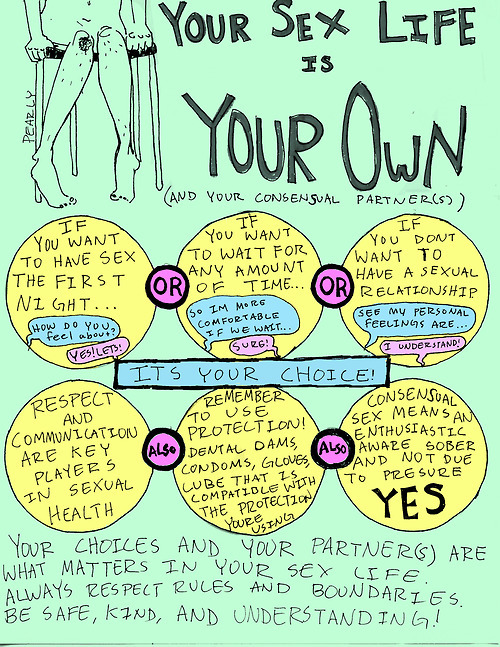 YOUR SEX LIFE
IS
YOUR OWN
(AND YOUR CONSENSUAL PARTNER(S))
PEARLY
IF
YOU WANT
TO HAVE SEX
THE FIRST
NIGHT...
HOW DO YOU
feel about?
YES! LETS!
OR
IF
YOU WANT
TO WAIT FOR
ANY AMOUNT
OF TIME...
SO IM MORE
COMFORTABLE
IF WE WAIT...
SURE!
OR
IF
YOU DONT
WANT TO
HAVE A SEXUAL
RELATIONSHIP
SEE MY PERSONAL
FEELINGS ARE...
I UNDERSTAND!
ITS YOUR CHOICE!
RESPECT
AND
COMMUNICATION
ARE KEY
PLAYERS
IN SEXUAL
HEALTH
ALSO
REMEMBER
TO USE
PROTECTION!
DENTAL DAMS,
CONDOMS, GLOVES,
LUBE THAT IS
COMPATIBLE WITH
THE PROTECTION
YOURE
USING
ALSO
CONSENSUAL
SEX MEANS AN
ENTHUSIASTIC
AWARE SOBER
AND NOT DUE
TO PRESURE
YES
YOUR CHOICES AND YOUR PARTNER(S) ARE
WHAT MATTERS IN YOUR SEX LIFE.
ALWAYS RESPECT RULES AND BOUNDARIES.
BE SAFE, KIND, AND UNDERSTANDING!